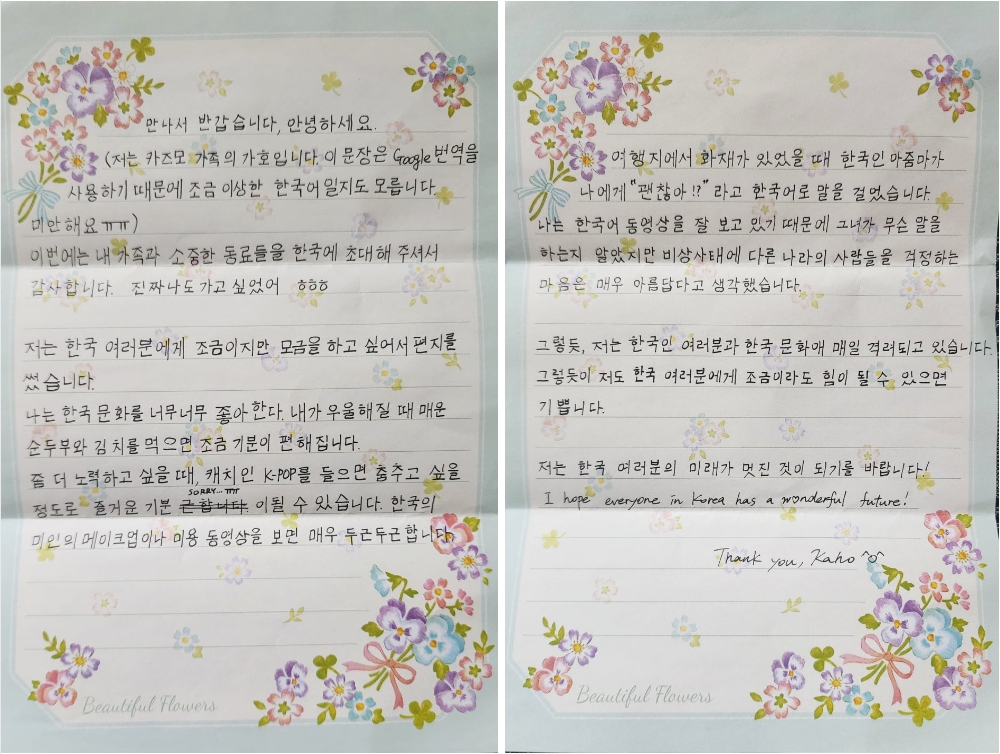 만나서 반갑습니다, 안녕하세요.
(저는 카즈모 가족의 가호입니다. 이 문장은 Google 번역을
사용하기 때문에 조금 이상한 한국어일지도 모릅니다.
미안해요 ㅠㅠ)
이번에는 내 가족과 소중한 동료들을 한국에 초대해 주셔서
감사합니다. 진짜 나도 가고 싶었어 ㅎㅎㅎ
저는 한국 여러분에게 조금이지만 모금을 하고 싶어서 편지를
썼습니다.
나는 한국 문화를 너무너무 좋아한다. 내가 우울해질 때 매운
순두부와 김치를 먹으면 조금 기분이 편해집니다.
좀 더 노력하고 싶을 때, 캐치인 K-POP를 들으면 춤추고 싶을
SORRY... ㅠㅠ
정도로 즐거운 기분 근합니다. 이될 수 있습니다. 한국의
미인의 메이크업이나 미용 동영상을 보면 매우 두근두근합니다.
Beautiful Flowers
여행지에서 화재가 있었을 때 한국인 아줌마가
나에게 "괜찮아!?" 라고 한국어로 말을 걸었습니다.
나는 한국어 동영상을 잘 보고 있기 때문에 그녀가 무슨 말을
하는지 알았지만 비상사태에 다른 나라의 사람들을 걱정하는
마음은 매우 아름답다고 생각했습니다.
그렇듯, 저는 한국인 여러분과 한국 문화애 매일 격려되고 있습니다.
그렇듯이 저도 한국 여러분에게 조금이라도 힘이 될 수 있으면
기쁩니다.
저는 한국 여러분의 미래가 멋진 것이 되기를 바랍니다!
I hope everyone in Korea has a wonderful future!
Thank you, Kaho ^o^
Beautiful Flowers